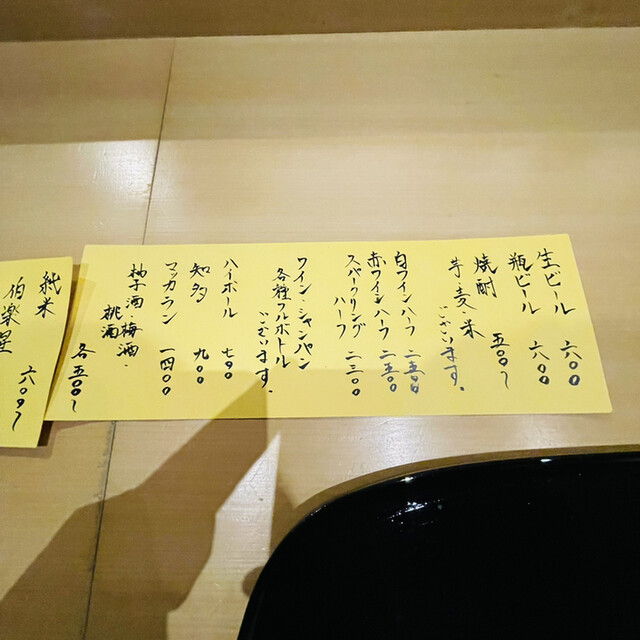 生ビール 六〇〇
瓶ビール 六〇〇
焼酎 五〇〇〜
芋・麦・米
ございます。
白ワインハーフ 二五〇〇
赤ワインハーフ 二五〇〇
スパークリング
ハーフ 二三〇〇
ワイン・シャンパン
各種フルボトル
ございます。
ハイボール 七九〇
知多 九〇〇
マッカラン 一四〇〇
柚子酒・梅酒・
桃酒
各五〇〇〜
純米
伯楽星 六〇九〜